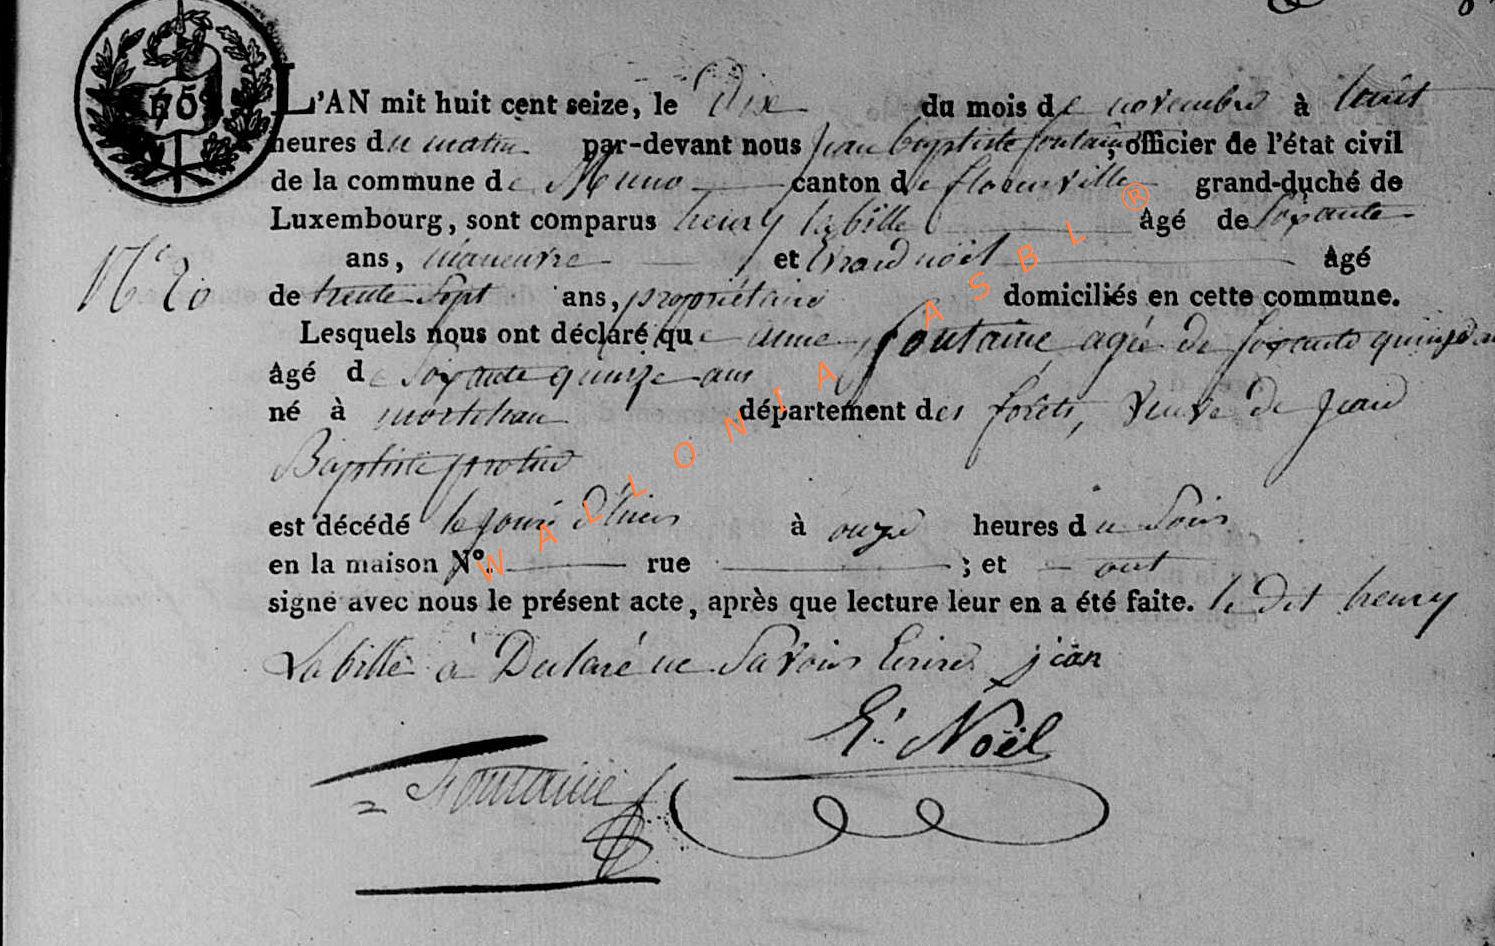 75
L'AN mit huit cent seize, le Dix du mois de novembre à huit
heures du matin par-devant nous jean baptiste fontaine, officier de l'état civil
de la commune de Muno canton de florenville grand-duché de
Luxembourg, sont comparus henry la bille âgé de Soxante
ans, maneuvre et Erard noël âgé
Nº 20
de trente Sept ans, propriétaire domiciliés en cette commune.
Lesquels nous ont déclaré que anne fontaine agée de Soxante quinze an
âgé de Soxante quinze ans
né à mortehan département des forêts, veuve de jean
Baptiste
est décédé le jour d'hier à onze heures du Soir
en la maison Nº. rue ; et ont
signé avec nous le présent acte, après que lecture leur en a été faite. le dit henry
La bille à Declaré ne Savoir Ecrire
E: Noël
= Fontaine
WALLONIA ASBL ®